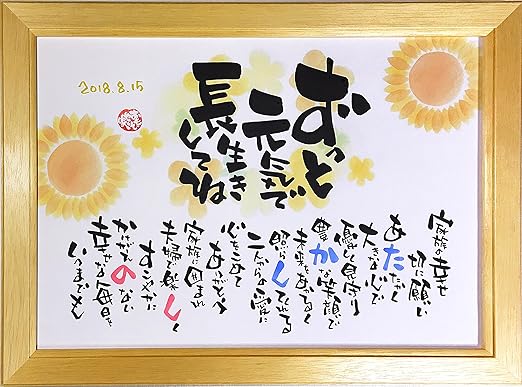 ずっと
元気で
長生き
してね
2018.8.15
家族の幸せ
切に願い
あたたかく
大きな心で
優しく見守り
豊かな笑顔で
未来をあかるく
照らしてくれる
二人からの愛に
心をこめて
ありがとう
家族に囲まれ
夫婦楽しく
すこやかに
かけがえのない
幸せな毎日を
いつまでも